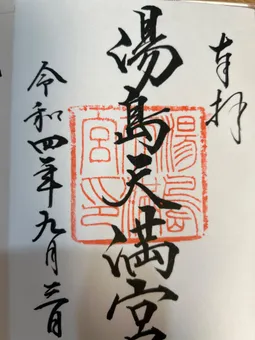 奉拝
湯島天満宮
湯島天満宮印
令和四年九月日